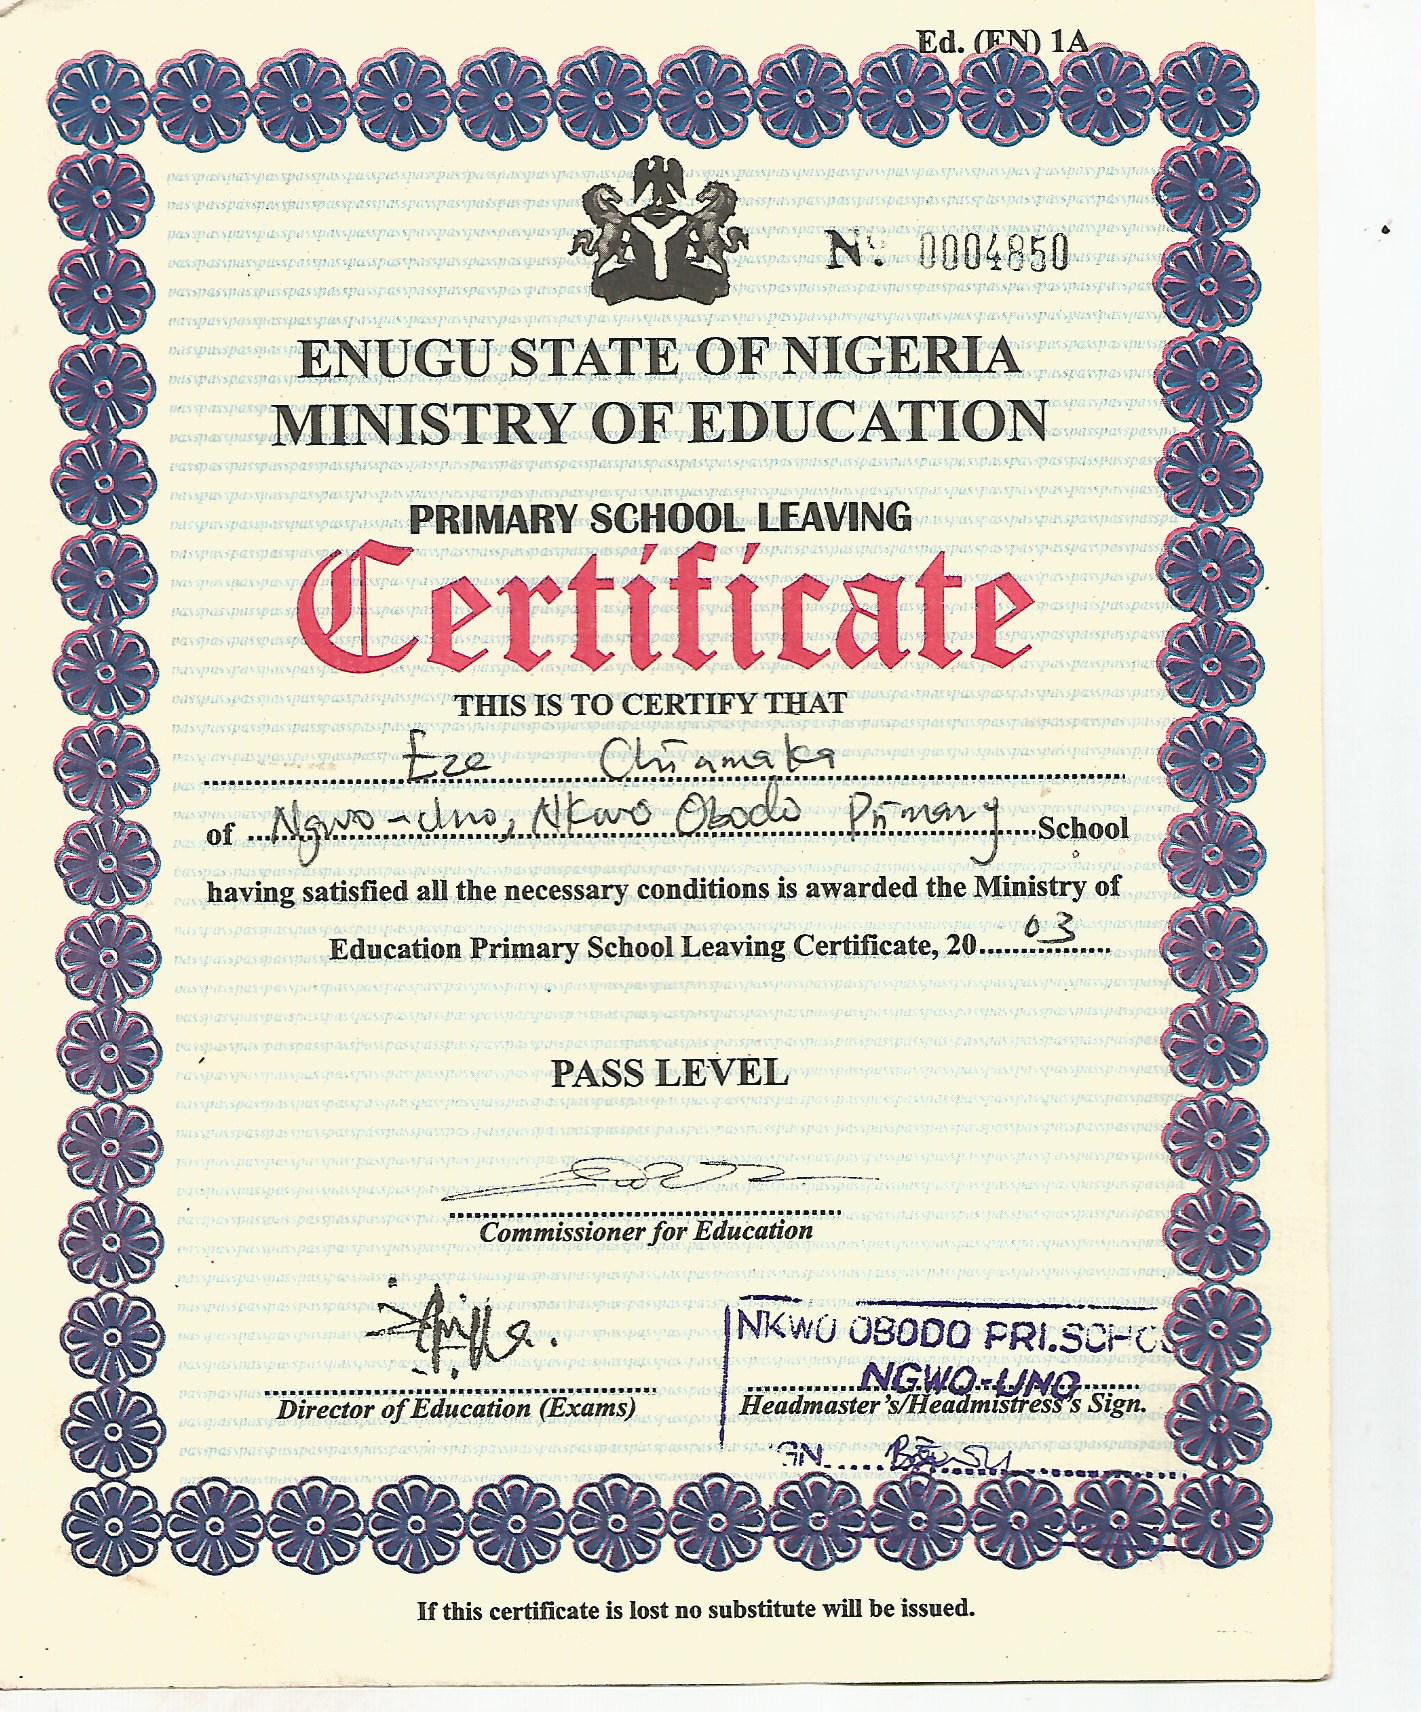 Ed. (EN) 1A
Nº 0004850
ENUGU STATE OF NIGERIA
MINISTRY OF EDUCATION
PRIMARY SCHOOL LEAVING
Certificate
THIS IS TO CERTIFY THAT
Eze Chiamaka
of Ngwo-Uno, Nkwo Obodo Primary School
having satisfied all the necessary conditions is awarded the Ministry of
Education Primary School Leaving Certificate, 2003
PASS LEVEL
Commissioner for Education
NKWO OBODO PRI.SCHO
NGWO-UNO
Director of Education (Exams)
Headmaster's/Headmistress's Sign.
GN.
If this certificate is lost no substitute will be issued.